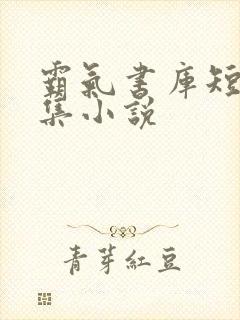 霸氣書庫短
集小說
青芽紅豆